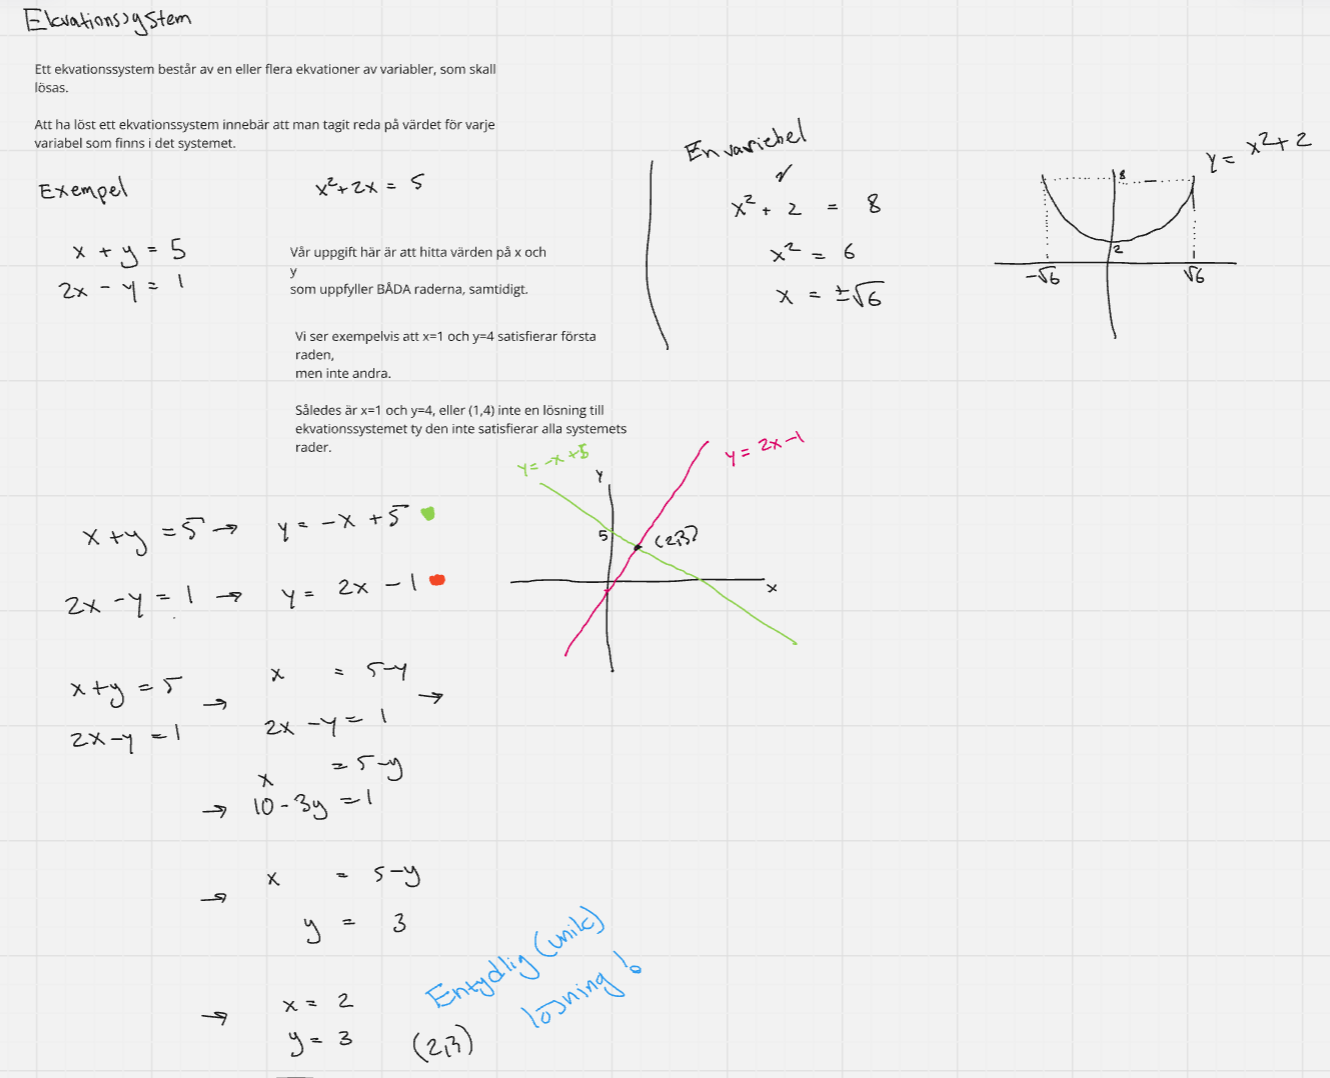 Ekvationssystem
Ett ekvationssystem består av en eller flera ekvationer av variabler, som skall
lösas.
Att ha löst ett ekvationssystem innebär att man tagit reda på värdet för varje
variabel som finns i det systemet.
Exempel
x + y = 5
2x - y = 1
x²+2x = 5
Vår uppgift här är att hitta värden på x och
y
som uppfyller BÅDA raderna, samtidigt.
Vi ser exempelvis att x=1 och y=4 satisfierar första
raden,
men inte andra.
Således är x=1 och y=4, eller (1,4) inte en lösning till
ekvationssystemet ty den inte satisfierar alla systemets
rader.
En variabel
x² + 2 = 8
x² = 6
x = ±√6
y = x²+2
8
2
-√6
√6
x+y = 5 → y = -x +5
2x - y = 1 → y = 2x - 1
y = -x +5
y = 2x-1
y
5
(2,3)
x
x+y = 5
2x-y = 1
→
x = 5-y
2x - y = 1
→
x = 5-y
→ 10-3y = 1
→ x = 5-y
y = 3
→ x = 2
y = 3
(2,3)
Entydlig (unik)
lösning!